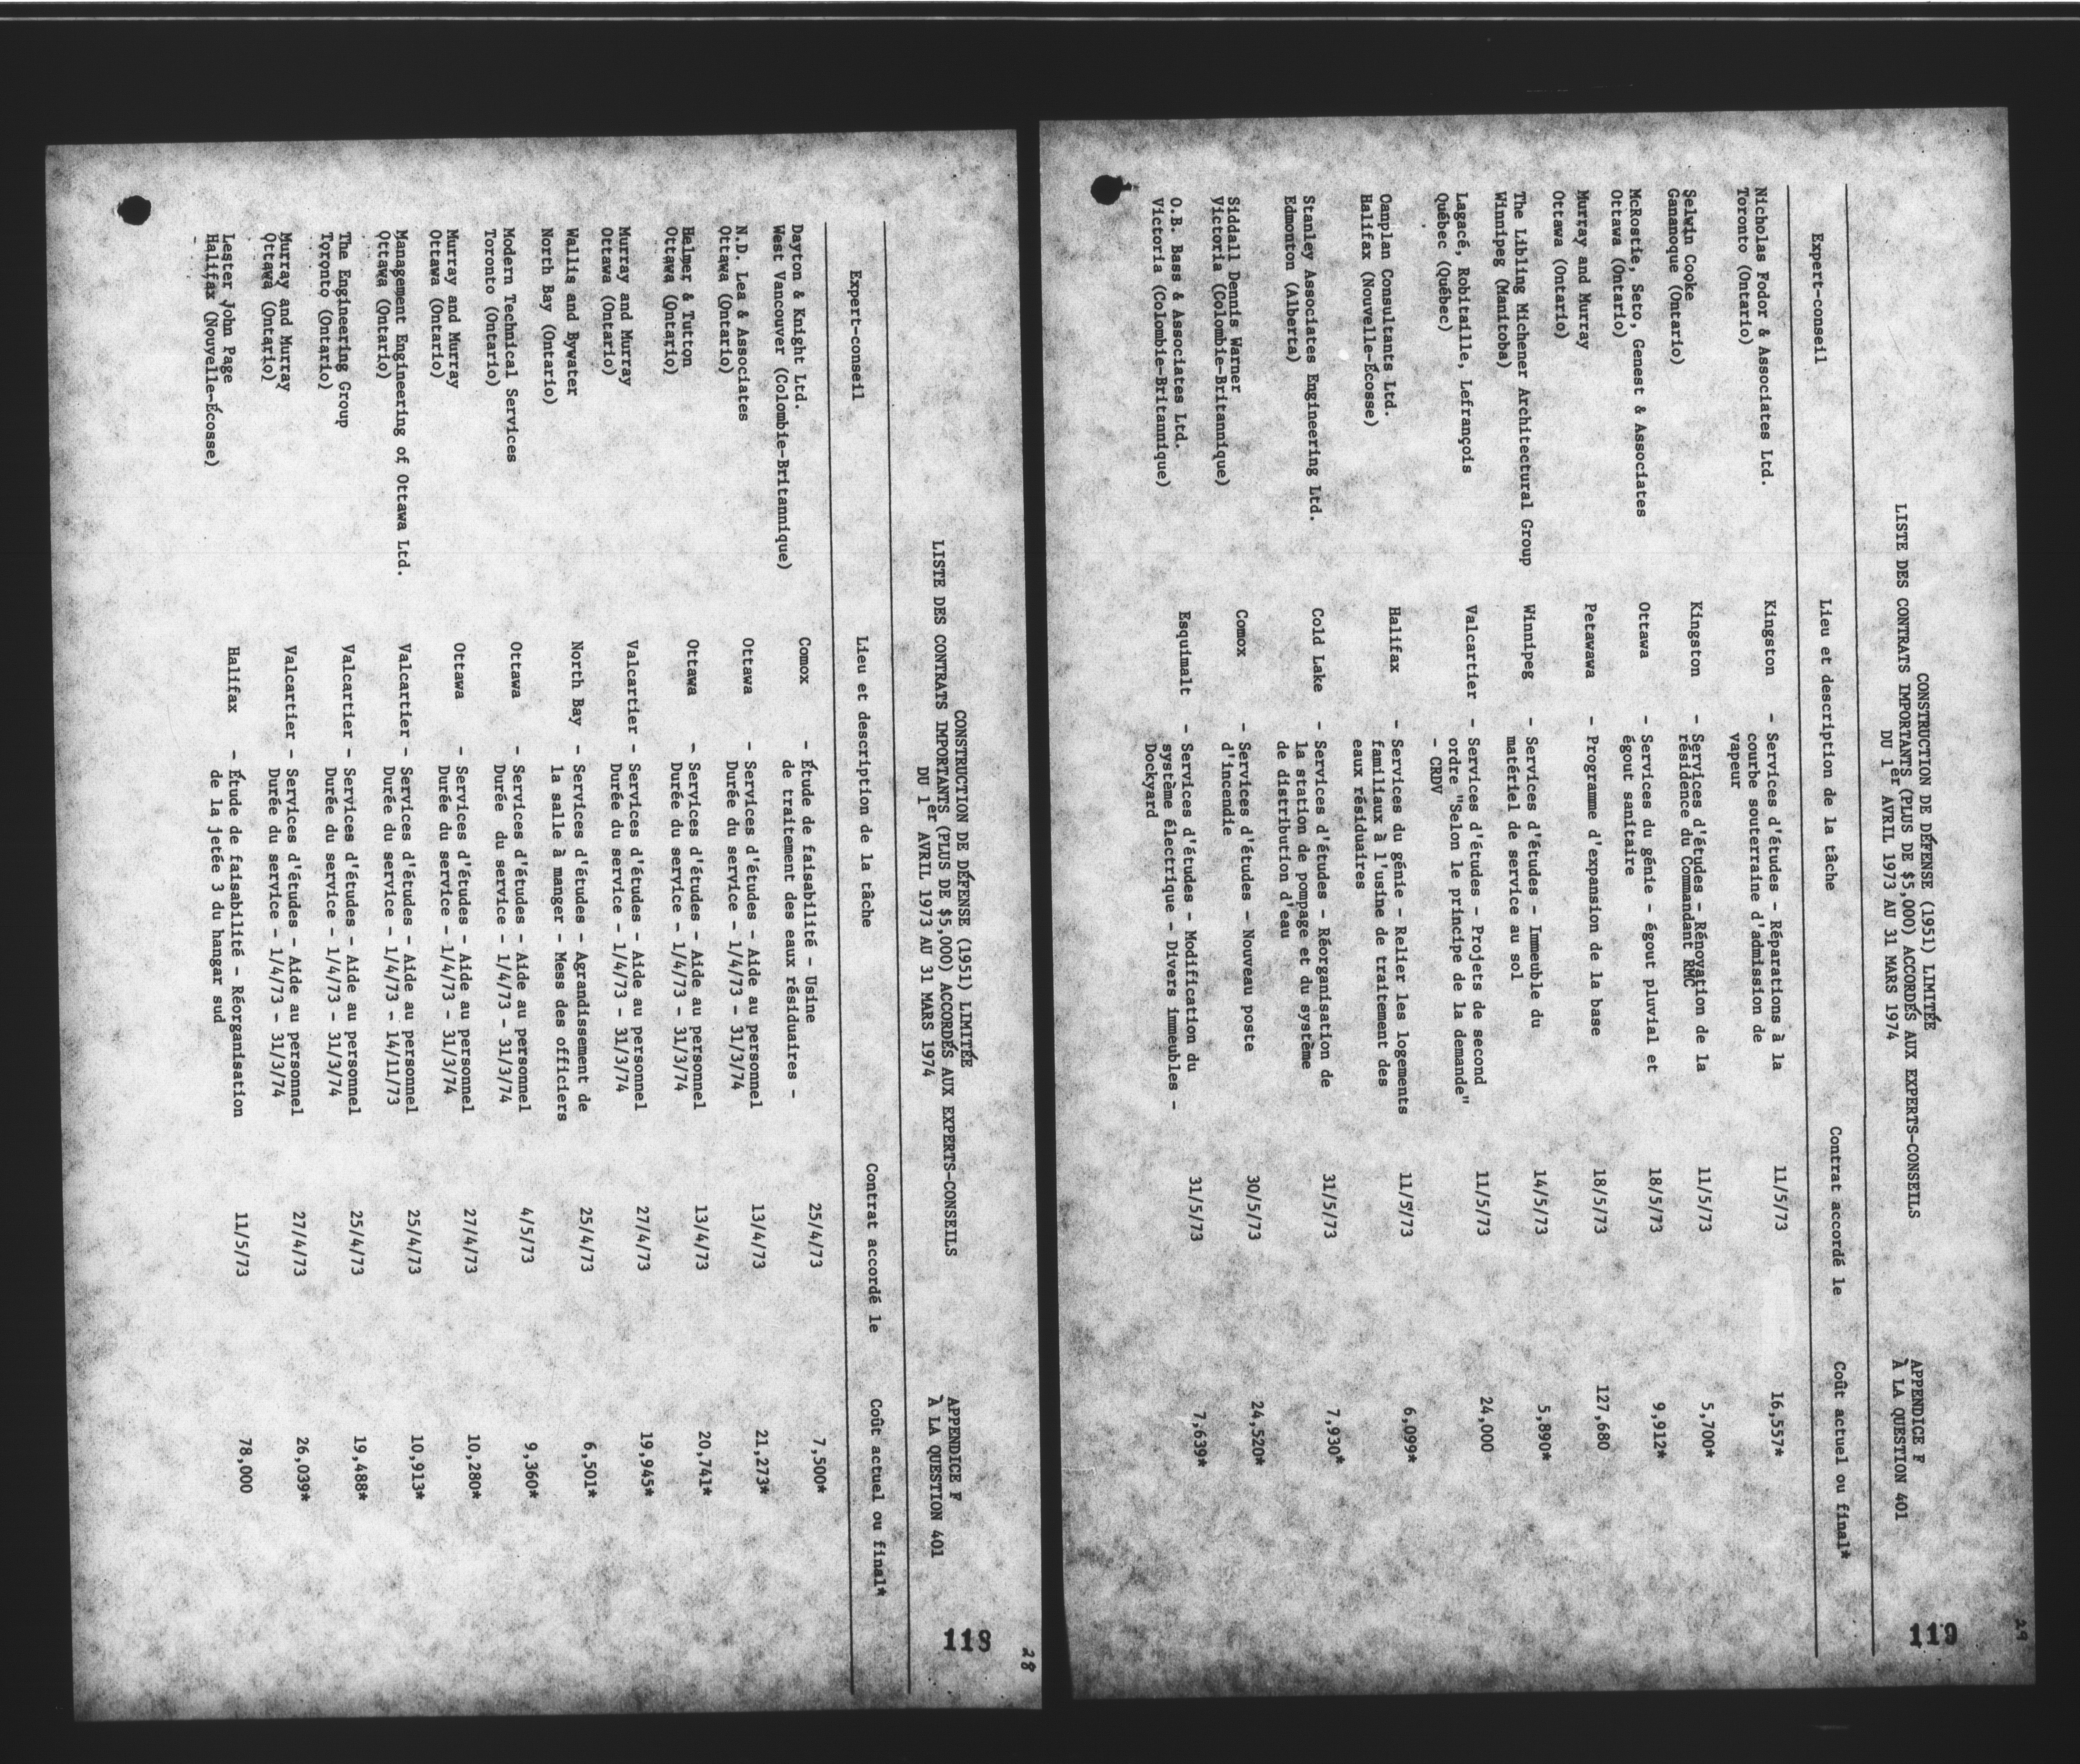 28
118
APPENDICE F
À LA QUESTION 401
CONSTRUCTION DE DÉFENSE (1951) LIMITÉE
LISTE DES CONTRATS IMPORTANTS (PLUS DE $5,000) ACCORDÉS AUX EXPERTS-CONSEILS
DU 1er AVRIL 1973 AU 31 MARS 1974
Expert-conseil Lieu et description de la tâche Contrat accordé le Coût actuel ou final*
Dayton & Knight Ltd. Comox - Étude de faisabilité - Usine 25/4/73 7,500*
West Vancouver (Colombie-Britannique) de traitement des eaux résiduaires -
N.D. Lea & Associates Ottawa - Services d'études - Aide au personnel 13/4/73 21,273*
Ottawa (Ontario) Durée du service - 1/4/73 - 31/3/74
Helmer & Tutton Ottawa - Services d'études - Aide au personnel 13/4/73 20,741*
Ottawa (Ontario) Durée du service - 1/4/73 - 31/3/74
Murray and Murray Valcartier - Services d'études - Aide au personnel 27/4/73 19,945*
Ottawa (Ontario) Durée du service - 1/4/73 - 31/3/74
Wallis and Bywater North Bay - Services d'études - Agrandissement de 25/4/73 6,501*
North Bay (Ontario) la salle à manger - Mess des officiers
Modern Technical Services Ottawa - Services d'études - Aide au personnel 4/5/73 9,360*
Toronto (Ontario) Durée du service - 1/4/73 - 31/3/74
Murray and Murray Ottawa - Services d'études - Aide au personnel 27/4/73 10,280*
Ottawa (Ontario) Durée du service - 1/4/73 - 31/3/74
Management Engineering of Ottawa Ltd. Valcartier - Services d'études - Aide au personnel 25/4/73 10,913*
Ottawa (Ontario) Durée du service - 1/4/73 - 14/11/73
The Engineering Group Valcartier - Services d'études - Aide au personnel 25/4/73 19,488*
Toronto (Ontario) Durée du service - 1/4/73 - 31/3/74
Murray and Murray Valcartier - Services d'études - Aide au personnel 27/4/73 26,039*
Ottawa (Ontario) Durée du service - 1/4/73 - 31/3/74
Lester John Page Halifax - Étude de faisabilité - Réorganisation 11/5/73 78,000
Halifax (Nouvelle-Écosse) de la jetée 3 du hangar sud
29
119
APPENDICE F
À LA QUESTION 401
CONSTRUCTION DE DÉFENSE (1951) LIMITÉE
LISTE DES CONTRATS IMPORTANTS (PLUS DE $5,000) ACCORDÉS AUX EXPERTS-CONSEILS
DU 1er AVRIL 1973 AU 31 MARS 1974
Expert-conseil Lieu et description de la tâche Contrat accordé le Coût actuel ou final*
Nicholas Fodor & Associates Ltd. Kingston - Services d'études - Réparations à la 11/5/73 16,557*
Toronto (Ontario) courbe souterraine d'admission de
vapeur
Selwin Cooke Kingston - Services d'études - Rénovation de la 11/5/73 5,700*
Gananoque (Ontario) résidence du Commandant RMC
McRostie, Seto, Genest & Associates Ottawa - Services du génie - égout pluvial et 18/5/73 9,912*
Ottawa (Ontario) égout sanitaire
Murray and Murray Petawawa - Programme d'expansion de la base 18/5/73 127,680
Ottawa (Ontario)
The Libling Michener Architectural Group Winnipeg - Services d'études - Immeuble du 14/5/73 5,890*
Winnipeg (Manitoba) matériel de service au sol
Lagacé, Robitaille, Lefrançois Valcartier - Services d'études - Projets de second 11/5/73 24,000
Québec (Québec) ordre "Selon le principe de la demande"
- CRDV
Canplan Consultants Ltd. Halifax - Services du génie - Relier les logements 11/5/73 6,099*
Halifax (Nouvelle-Écosse) familiaux à l'usine de traitement des
eaux résiduaires
Stanley Associates Engineering Ltd. Cold Lake - Services d'études - Réorganisation de 31/5/73 7,930*
Edmonton (Alberta) la station de pompage et du système
de distribution d'eau
Siddall Dennis Warner Comox - Services d'études - Nouveau poste 30/5/73 24,520*
Victoria (Colombie-Britannique) d'incendie
O.B. Bass & Associates Ltd. Esquimalt - Services d'études - Modification du 31/5/73 7,639*
Victoria (Colombie-Britannique) système électrique - Divers immeubles -
Dockyard